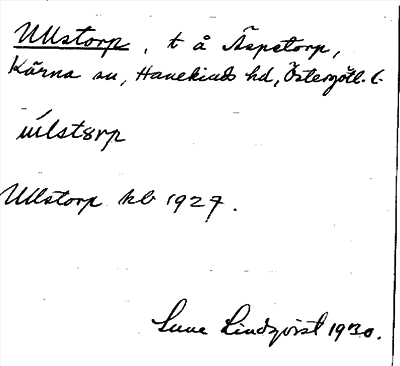 Ullstorp, t å Äspetorp,
Kärna sn, Hanekinds hd, Östergötl. l.
ùlstørp
Ullstorp kb 1927.
Sune Lindqvist 1930.